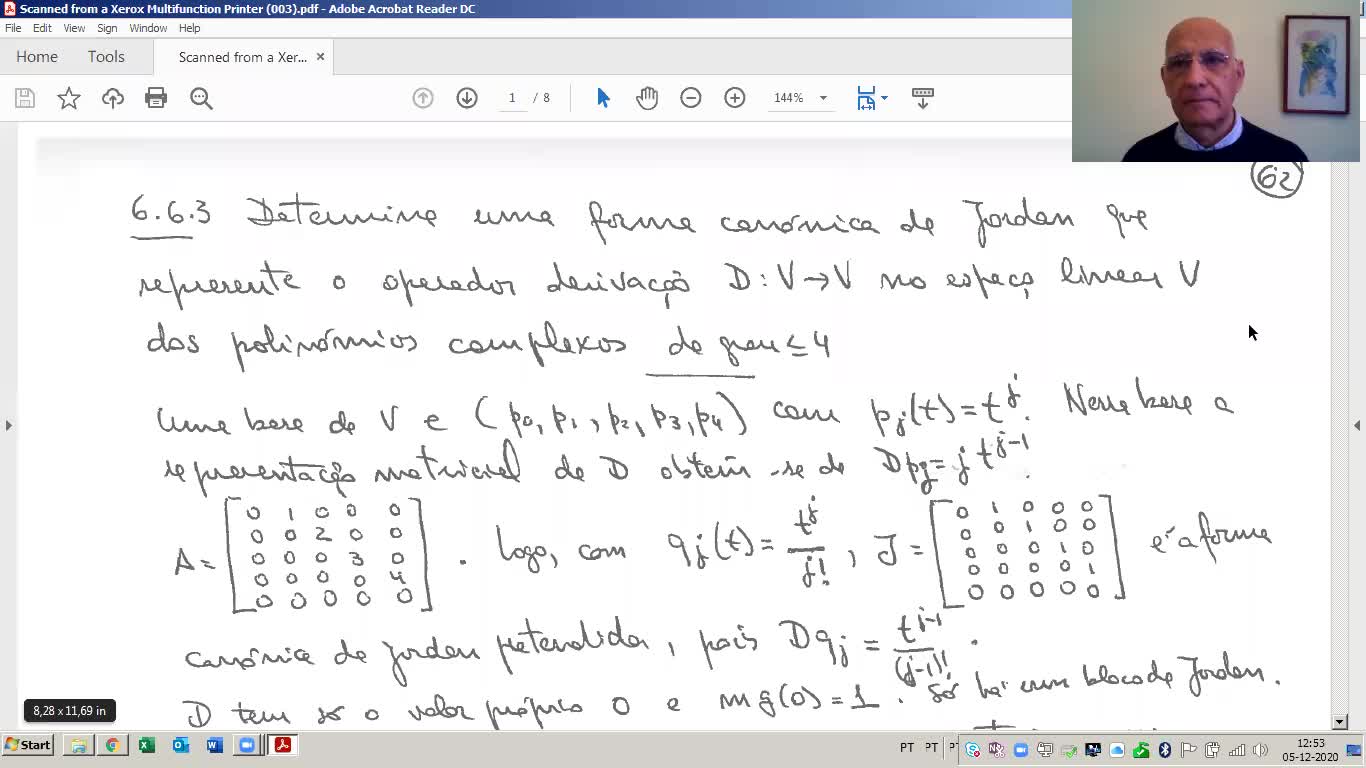 Scanned from a Xerox Multifunction Printer (003).pdf - Adobe Acrobat Reader DC
File Edit View Sign Window Help
Home Tools Scanned from a Xer... ×
1 / 8 144%
62
6.6.3 Determine uma forma canónica de Jordan que
represente o operador derivação D: V→V no espaço linear V
dos polinómios complexos de grau ≤ 4
Uma base de V é (p0, p1, p2, p3, p4) com pj(t)=t^j. Nessa base a
representação matricial de D obtém-se de Dpj=j t^{j-1}.
A = [0 1 0 0 0; 0 0 2 0 0; 0 0 0 3 0; 0 0 0 0 4; 0 0 0 0 0]. Logo, com qj(t) = t^j/j!, J = [0 1 0 0 0; 0 0 1 0 0; 0 0 0 1 0; 0 0 0 0 1; 0 0 0 0 0] é a forma
canónica de Jordan pretendida, pois Dqj = t^{j-1}/(j-1)!.
D tem só o valor próprio 0 e mg(0)=1. Só há um bloco de Jordan.
8,28 x 11,69 in
Start PT PT 12:53
05-12-2020